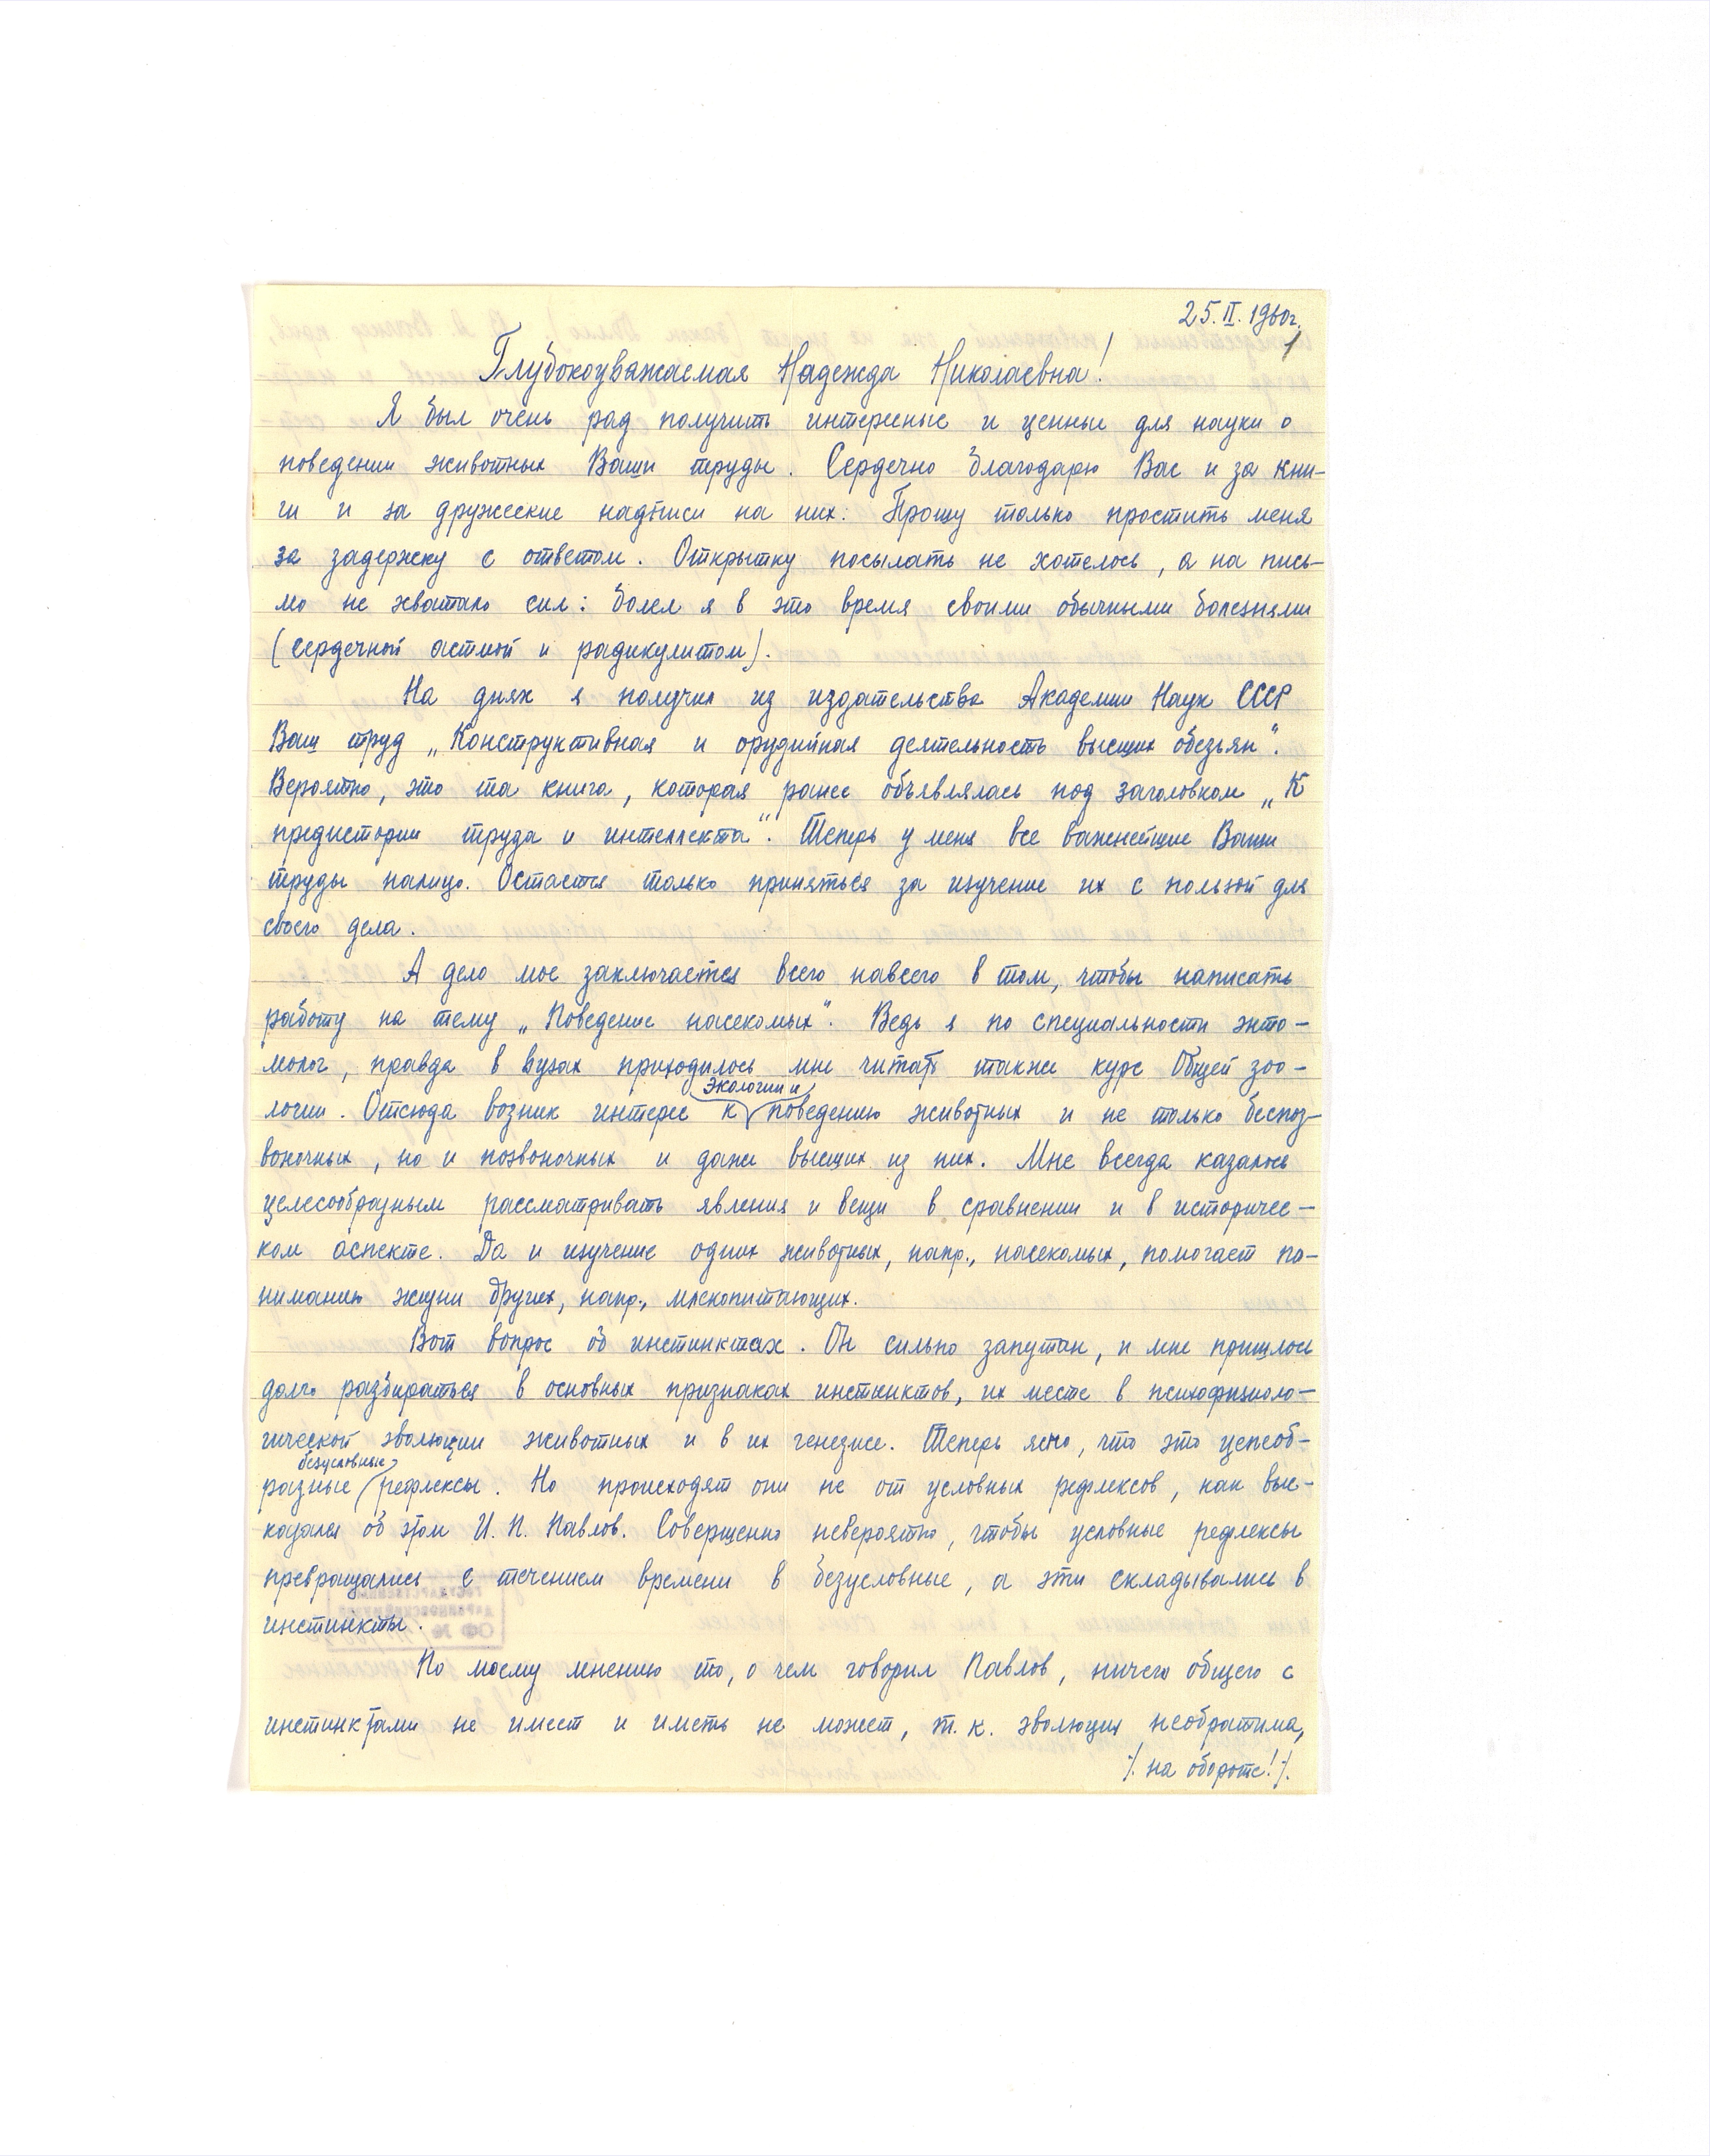 25.II.1960г.
1
Глубокоуважаемая Надежда Николаевна!
Я был очень рад получить интересные и ценные для науки о
поведении животных Ваши труды. Сердечно благодарю Вас и за кни-
ги и за дружеские надписи на них. Прошу только простить меня
за задержку с ответом. Открытку посылать не хотелось, а на пись-
мо не хватало сил: болел я в это время своими обычными болезнями
(сердечной астмой и радикулитом).
На днях я получил из издательства Академии Наук СССР
Ваш труд „Конструктивная и орудийная деятельность высших обезьян“.
Вероятно, это та книга, которая ранее объявлялась под заголовком „К
предистории труда и интеллекта“. Теперь у меня все важнейшие Ваши
труды налицо. Остается только приняться за изучение их с пользой для
своего дела.
А дело мое заключается всего навсего в том, чтобы написать
работу на тему „Поведение насекомых“. Ведь я по специальности энто-
молог, правда в вузах приходилось мне читать также курс Общей зоо-
логии. Отсюда возник интерес к экологии и поведению животных и не только беспоз-
воночных, но и позвоночных и даже высших из них. Мне всегда казалось
целесообразным рассматривать явления и вещи в сравнении и в историчес-
ком аспекте. Да и изучение одних животных, напр., насекомых, помогает по-
ниманию жизни других, напр., млекопитающих.
Вот вопрос об инстинктах. Он сильно запутан, и мне пришлось
долго разбираться в основных признаках инстинктов, их месте в психофизиоло-
гической эволюции животных и в их генезисе. Теперь ясно, что это цепеоб-
разные безусловные рефлексы. Но происходят они не от условных рефлексов, как выс-
казался об этом И. П. Павлов. Совершенно невероятно, чтобы условные рефлексы
превращались с течением времени в безусловные, а эти складывались в
инстинкты.
По моему мнению то, о чем говорил Павлов, ничего общего с
инстинктами не имеет и иметь не может, т. к. эволюция необратима,
·/. на обороте! ·/.